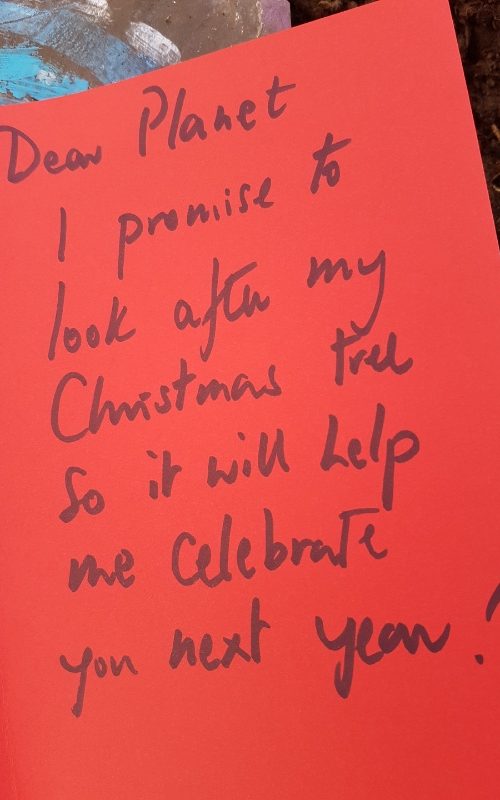 Dear Planet
I promise to
look after my
Christmas tree
So it will help
me Celebrate
you next year!